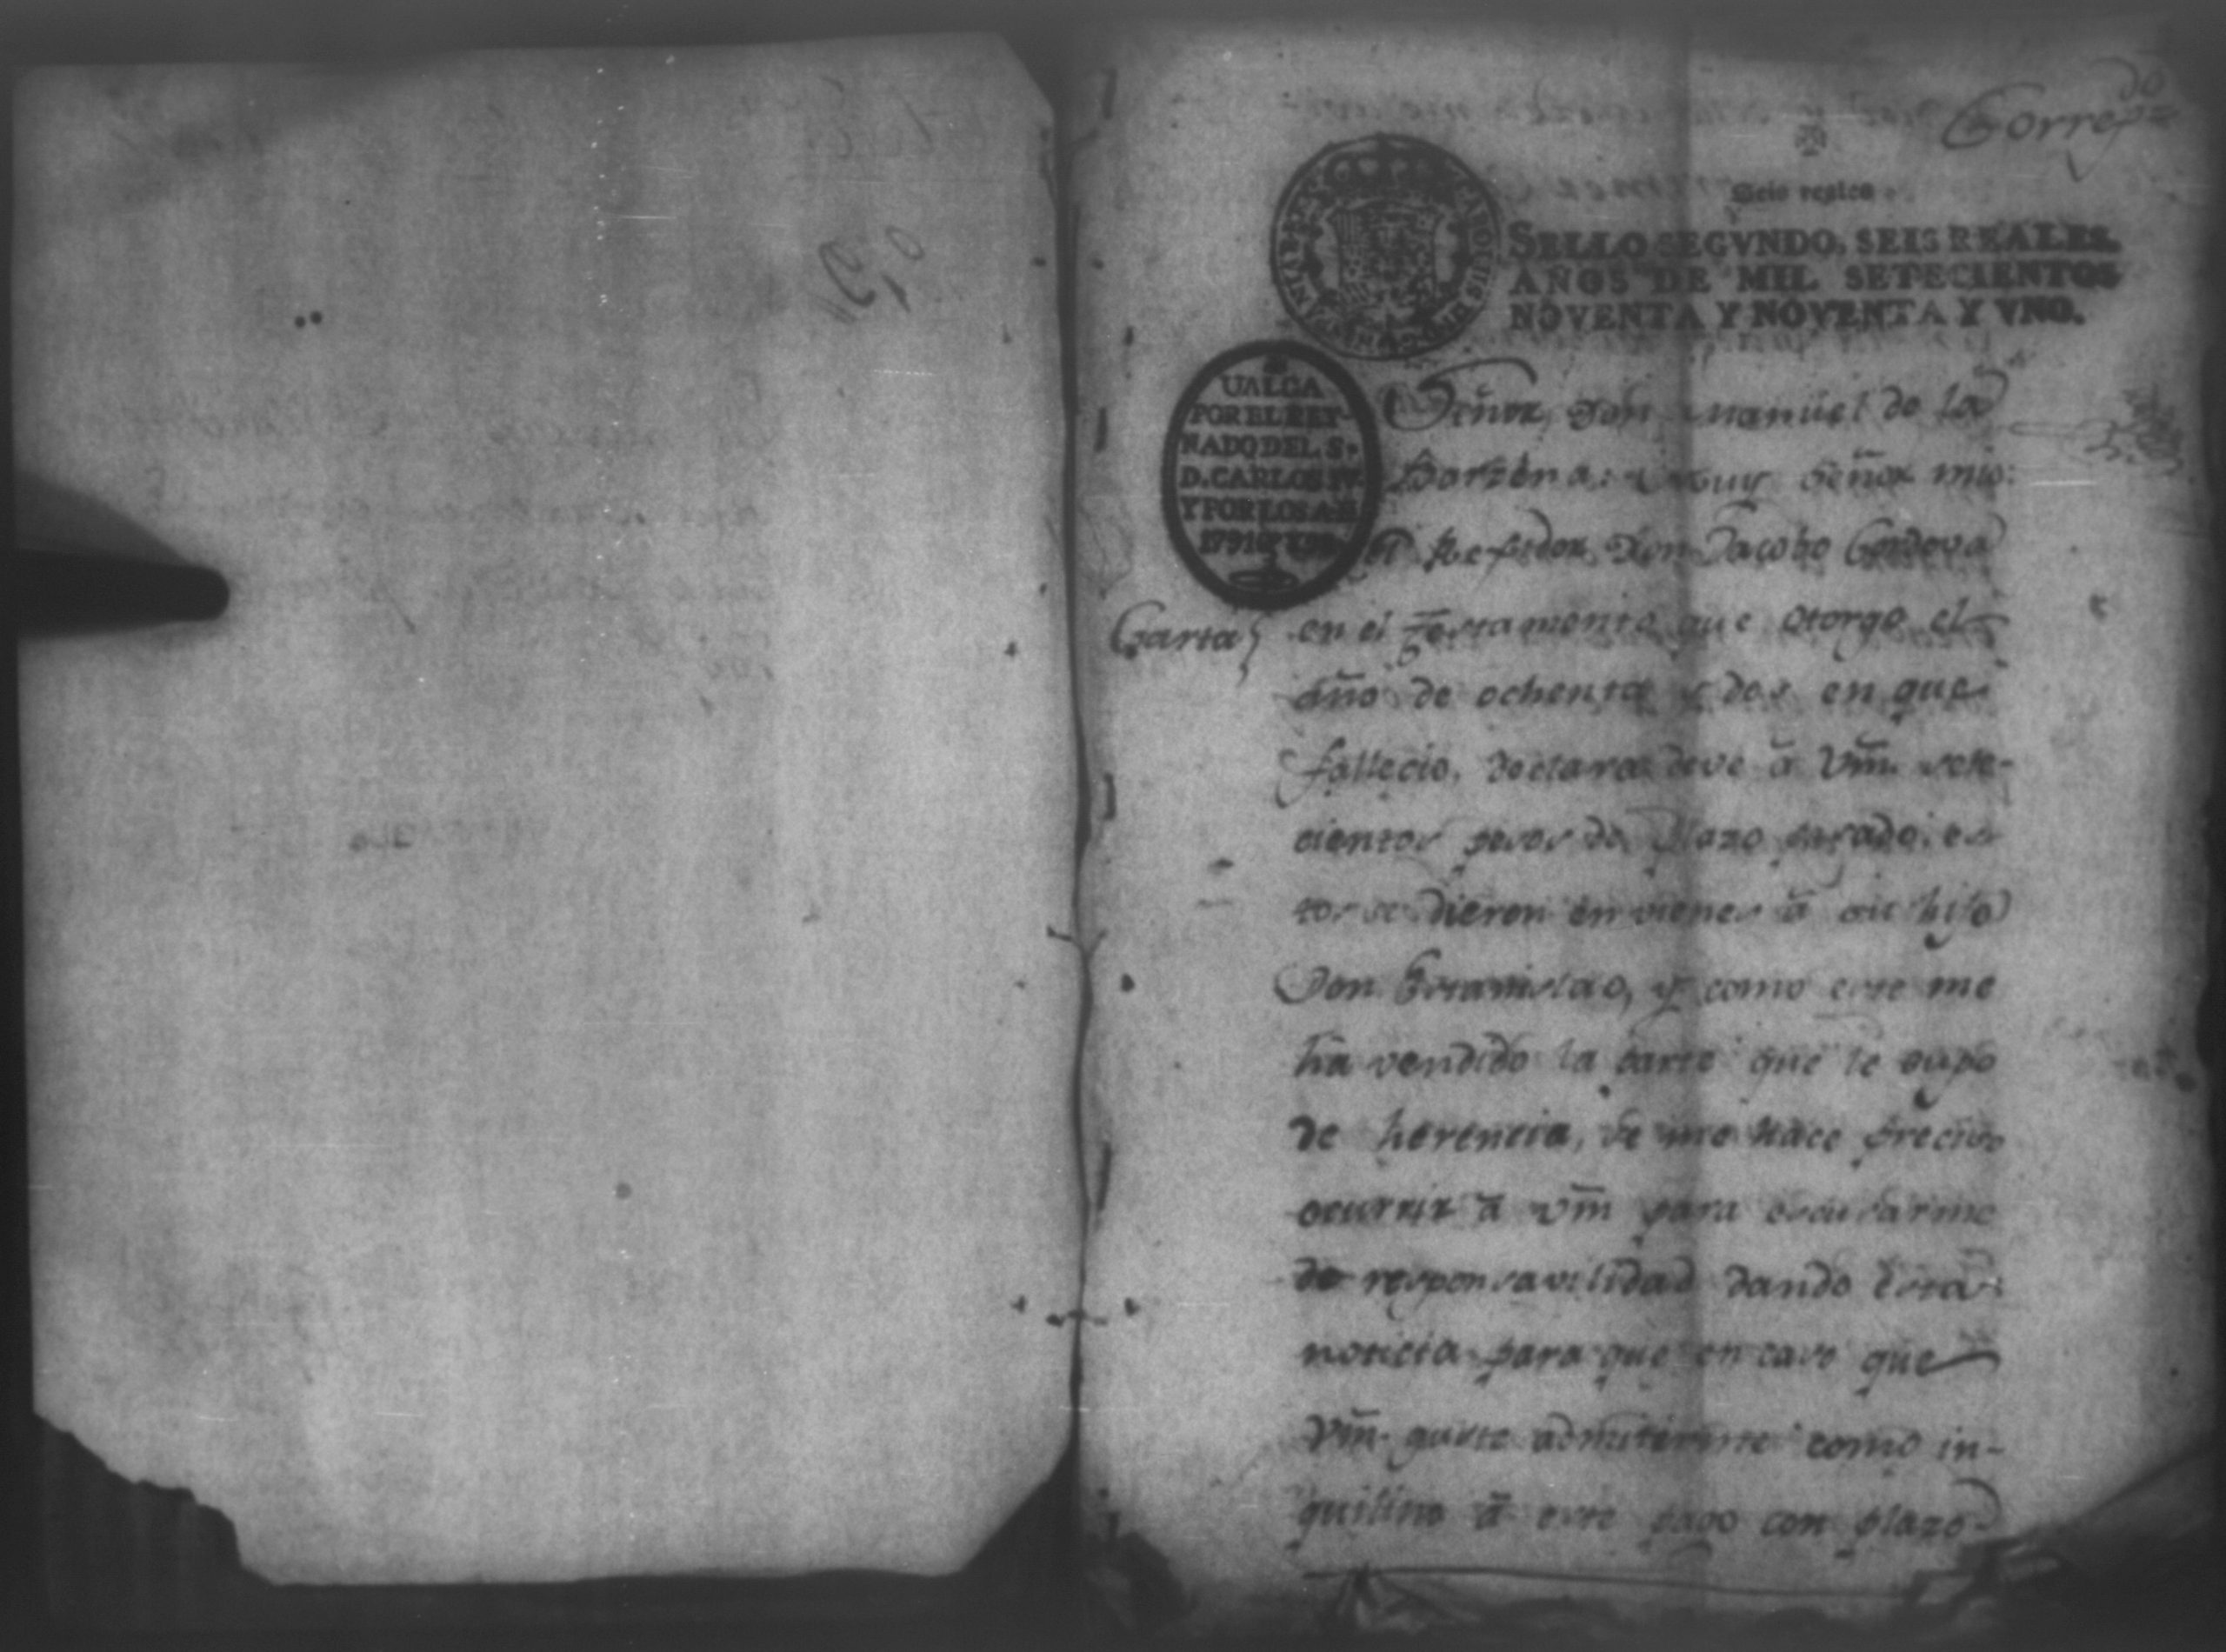 Correg.do
Seis reales
SELLO SEGVNDO, SEIS REALES,
AÑOS DE MIL SETECIENTOS
NOVENTA Y NOVENTA Y VNO.
UALGA
POR EL REY-
NADO DEL S.
D. CARLOS IV.
Y POR LOS A.S
Señor, Don Manuel de la
Barzena: Muy Señor mio:
el Rexidor, Don Jacobo Cordova
Carta
en el Testamento que otorgo el
año de ochenta y dos en que
fallecio, declara deve â Vm̃. sete-
cientos pesos de plazo pasado, es-
tos se dieron en vienes â su hijo
Don Estanislao, y como este me
hâ vendido la parte que le cupo
de herencia, se me hace preciso
ocurrir â Vm̃ para escusarme
de responsavilidad dando esta
noticia para que en caso que
Vm̃. guste admitirme como in-
quilino â este pago con plazo